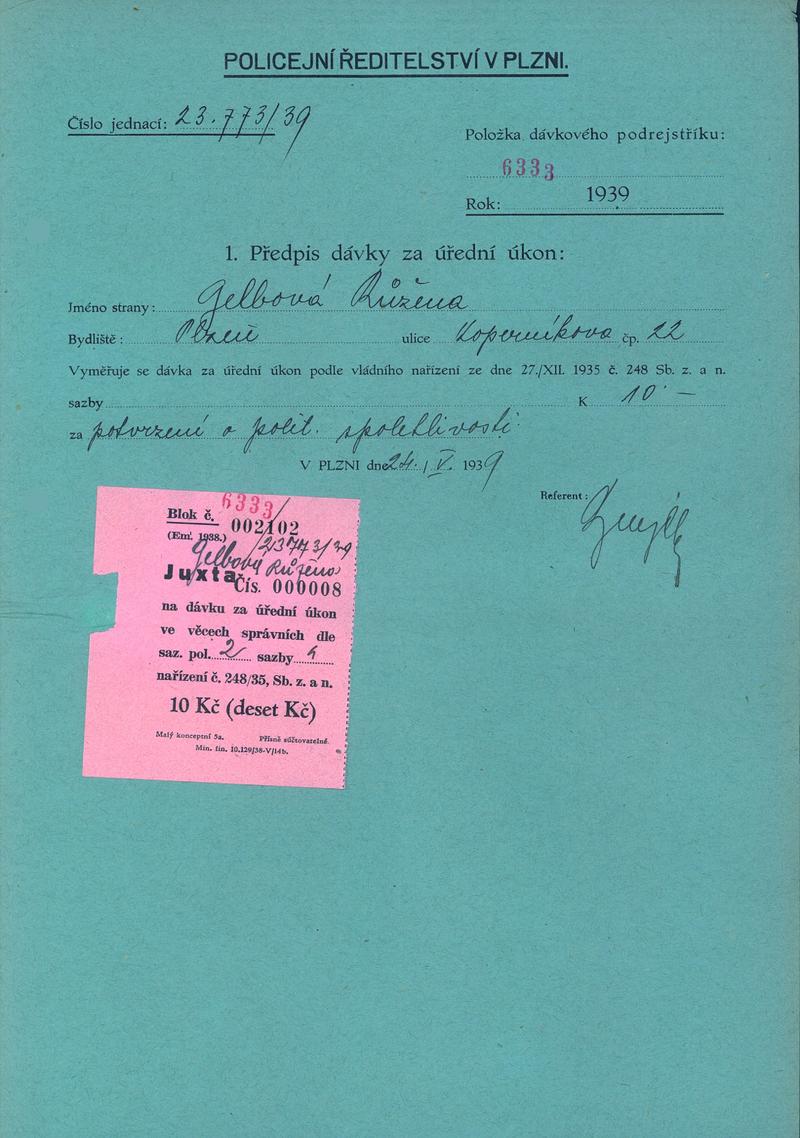 POLICEJNÍ ŘEDITELSTVÍ V PLZNI.
Číslo jednací: 23.773/39
Položka dávkového podrejstříku:
6333
Rok: 1939
1. Předpis dávky za úřední úkon:
Jméno strany: Gelbová Růžena
Bydliště: Plzeň ulice Koperníkova čp. 22
Vyměřuje se dávka za úřední úkon podle vládního nařízení ze dne 27./XII. 1935 č. 248 Sb. z. a n.
sazby K 10·—
za potvrzení o polit. spolehlivosti
V PLZNI dne 24./V. 1939
Referent:
6333/
Blok č. 002102
(Em. 1938.) 23773/39
Gelbová Růžena
Juxta Čís. 000008
na dávku za úřední úkon
ve věcech správních dle
saz. pol. 2 sazby
nařízení č. 248/35, Sb. z. a n.
10 Kč (deset Kč)
Malý konceptní 5a. Přísně súčtovatelné.
Min. fin. 10.129/38-V/14b.